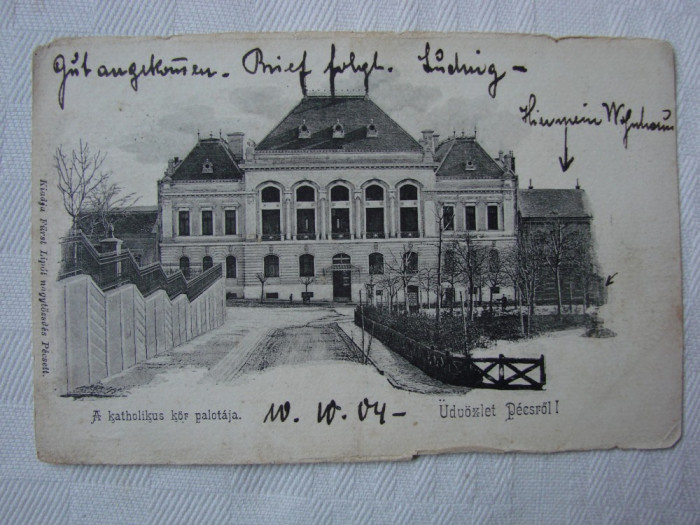 Gut angekommen. Brief folgt. Ludwig –
Hier mein Wohnhaus
Kiadja Fürst Lipót nagytőzsdés Pécsett.
A katholikus kör palotája.
10. 10. 04 –
Üdvözlet Pécsről!